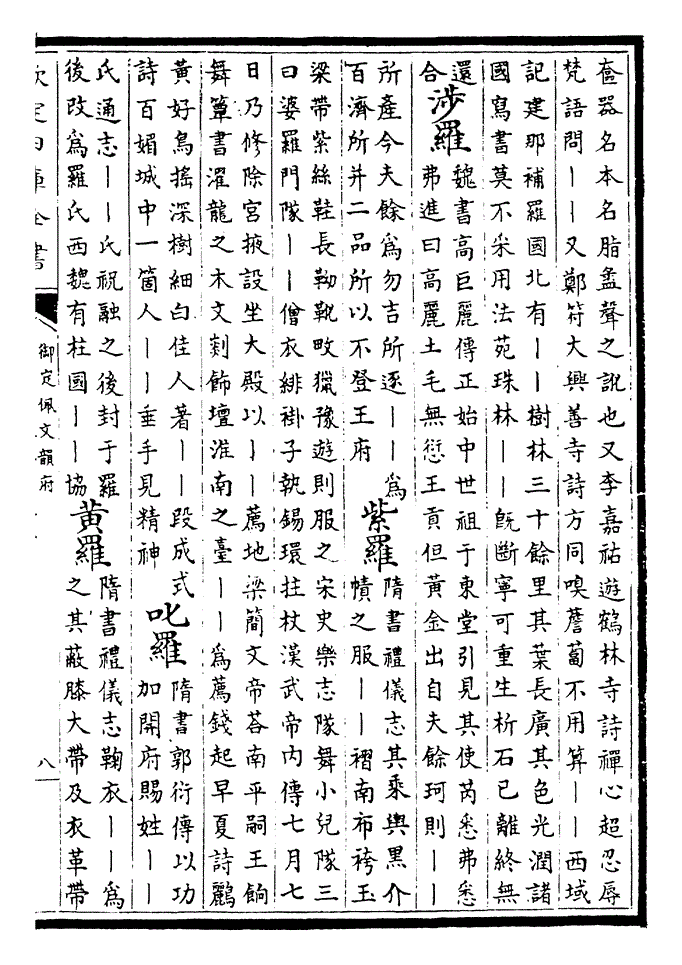 奩器名本名脂盝聲之訛也又李嘉祐遊鶴林寺詩禪心超忍辱
梵語問――又鄭符大興善寺詩方同嗅薝蔔不用算――西域
記建那補羅國北有――樹林三十餘里其葉長廣其色光潤諸
國寫書莫不采用法苑珠林――既斷寧可重生析石已離終無
還
合
涉羅
魏書高巨麗傳正始中世祖于東堂引見其使芮悉弗悉
弗進曰高麗土毛無愆王貢但黃金出自夫餘珂則――
所產今夫餘爲勿吉所逐――爲
百濟所并二品所以不登王府
紫羅
隋書禮儀志其乘輿黑介
幘之服――褶南布袴玉
梁帶紫絲鞋長靿靴畋獵豫遊則服之宋史樂志隊舞小兒隊三
曰婆羅門隊――僧衣緋褂子執錫環拄杖漢武帝內傳七月七
日乃修除宮掖設坐大殿以――薦地梁簡文帝荅南平嗣王餉
舞簟書濯龍之木文剡飾壇淮南之臺――爲薦錢起早夏詩鸝
黃好鳥搖深樹細白佳人著――段成式
詩百媚城中一箇人――垂手見精神
叱羅
隋書郭衍傳以功
加開府賜姓――
氏通志――氏祝融之後封于羅
後改爲羅氏西魏有柱國――協
黃羅
隋書禮儀志鞠衣――爲
之其蔽膝大帶及衣革帶
欽定四庫全書
御定佩文韻府
八